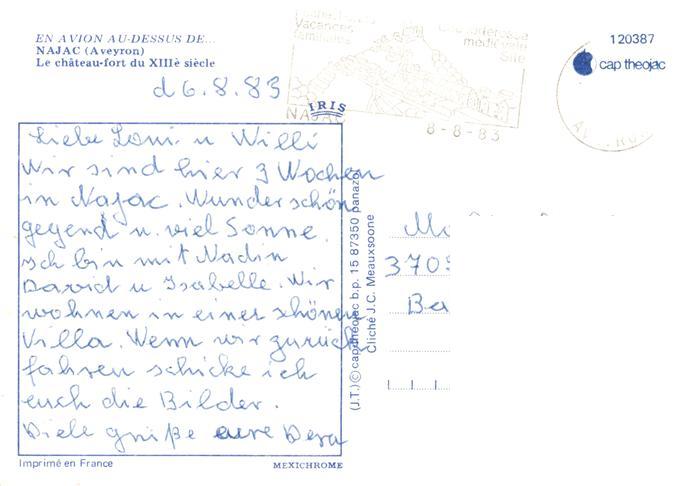 EN AVION AU-DESSUS DE...
NAJAC (Aveyron)
Le château-fort du XIIIè siècle
d 6.8.83
Vacances
familiales
médiévale
Site
NAJAC
8-8-83
IRIS
120387
cap theojac
Liebe Loni u Willi
Wir sind hier 3 Wochen
in Najac. Wunderschön
gegend u. viel Sonne.
Ich bin mit Nadin
David u Isabelle. Wir
wohnen in einer schönen
Villa. Wenn wir zurück
fahren schicke ich
euch die Bilder.
Viele grüße eure Dera
(J.T.) © cap-theojac b.p. 15 87350 panazol
Cliché J.C. Meauxsoone
370
Ba
Imprimé en France
MEXICHROME